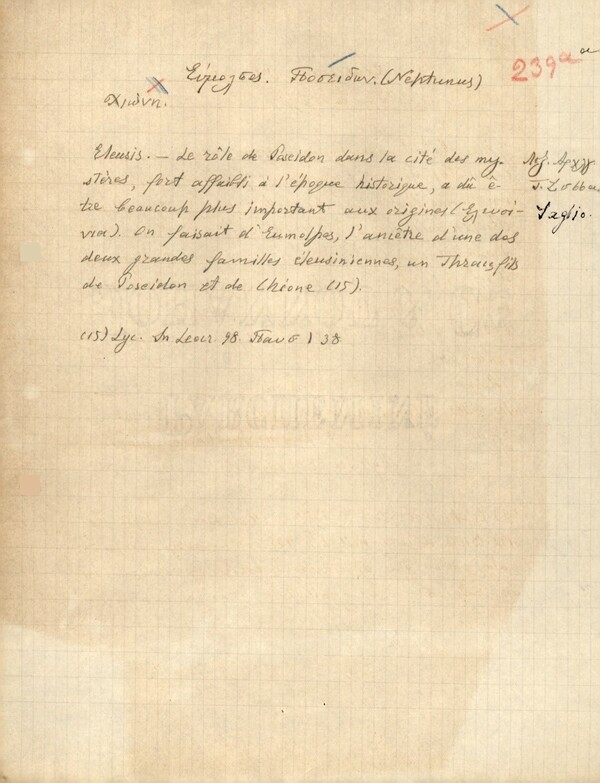 Εύμολπος. Ποσειδών. (Neptunus) 239α α
Χιώνη.
Eleusis. — Le rôle de Poseidon dans la cité des my-
stères, fort affaibli à l'époque historique, a dû ê-
tre beaucoup plus important aux origines (Ελευσί-
νια). On faisait d'Eumolpos, l'ancêtre d'une des
deux grandes familles éleusiniennes, un Thrace, fils
de Poseidon et de Chione (15).
Λεξ. Αρχ
Saglio.
(15) Lyc. In Leocr. 98. Παυσ I 38